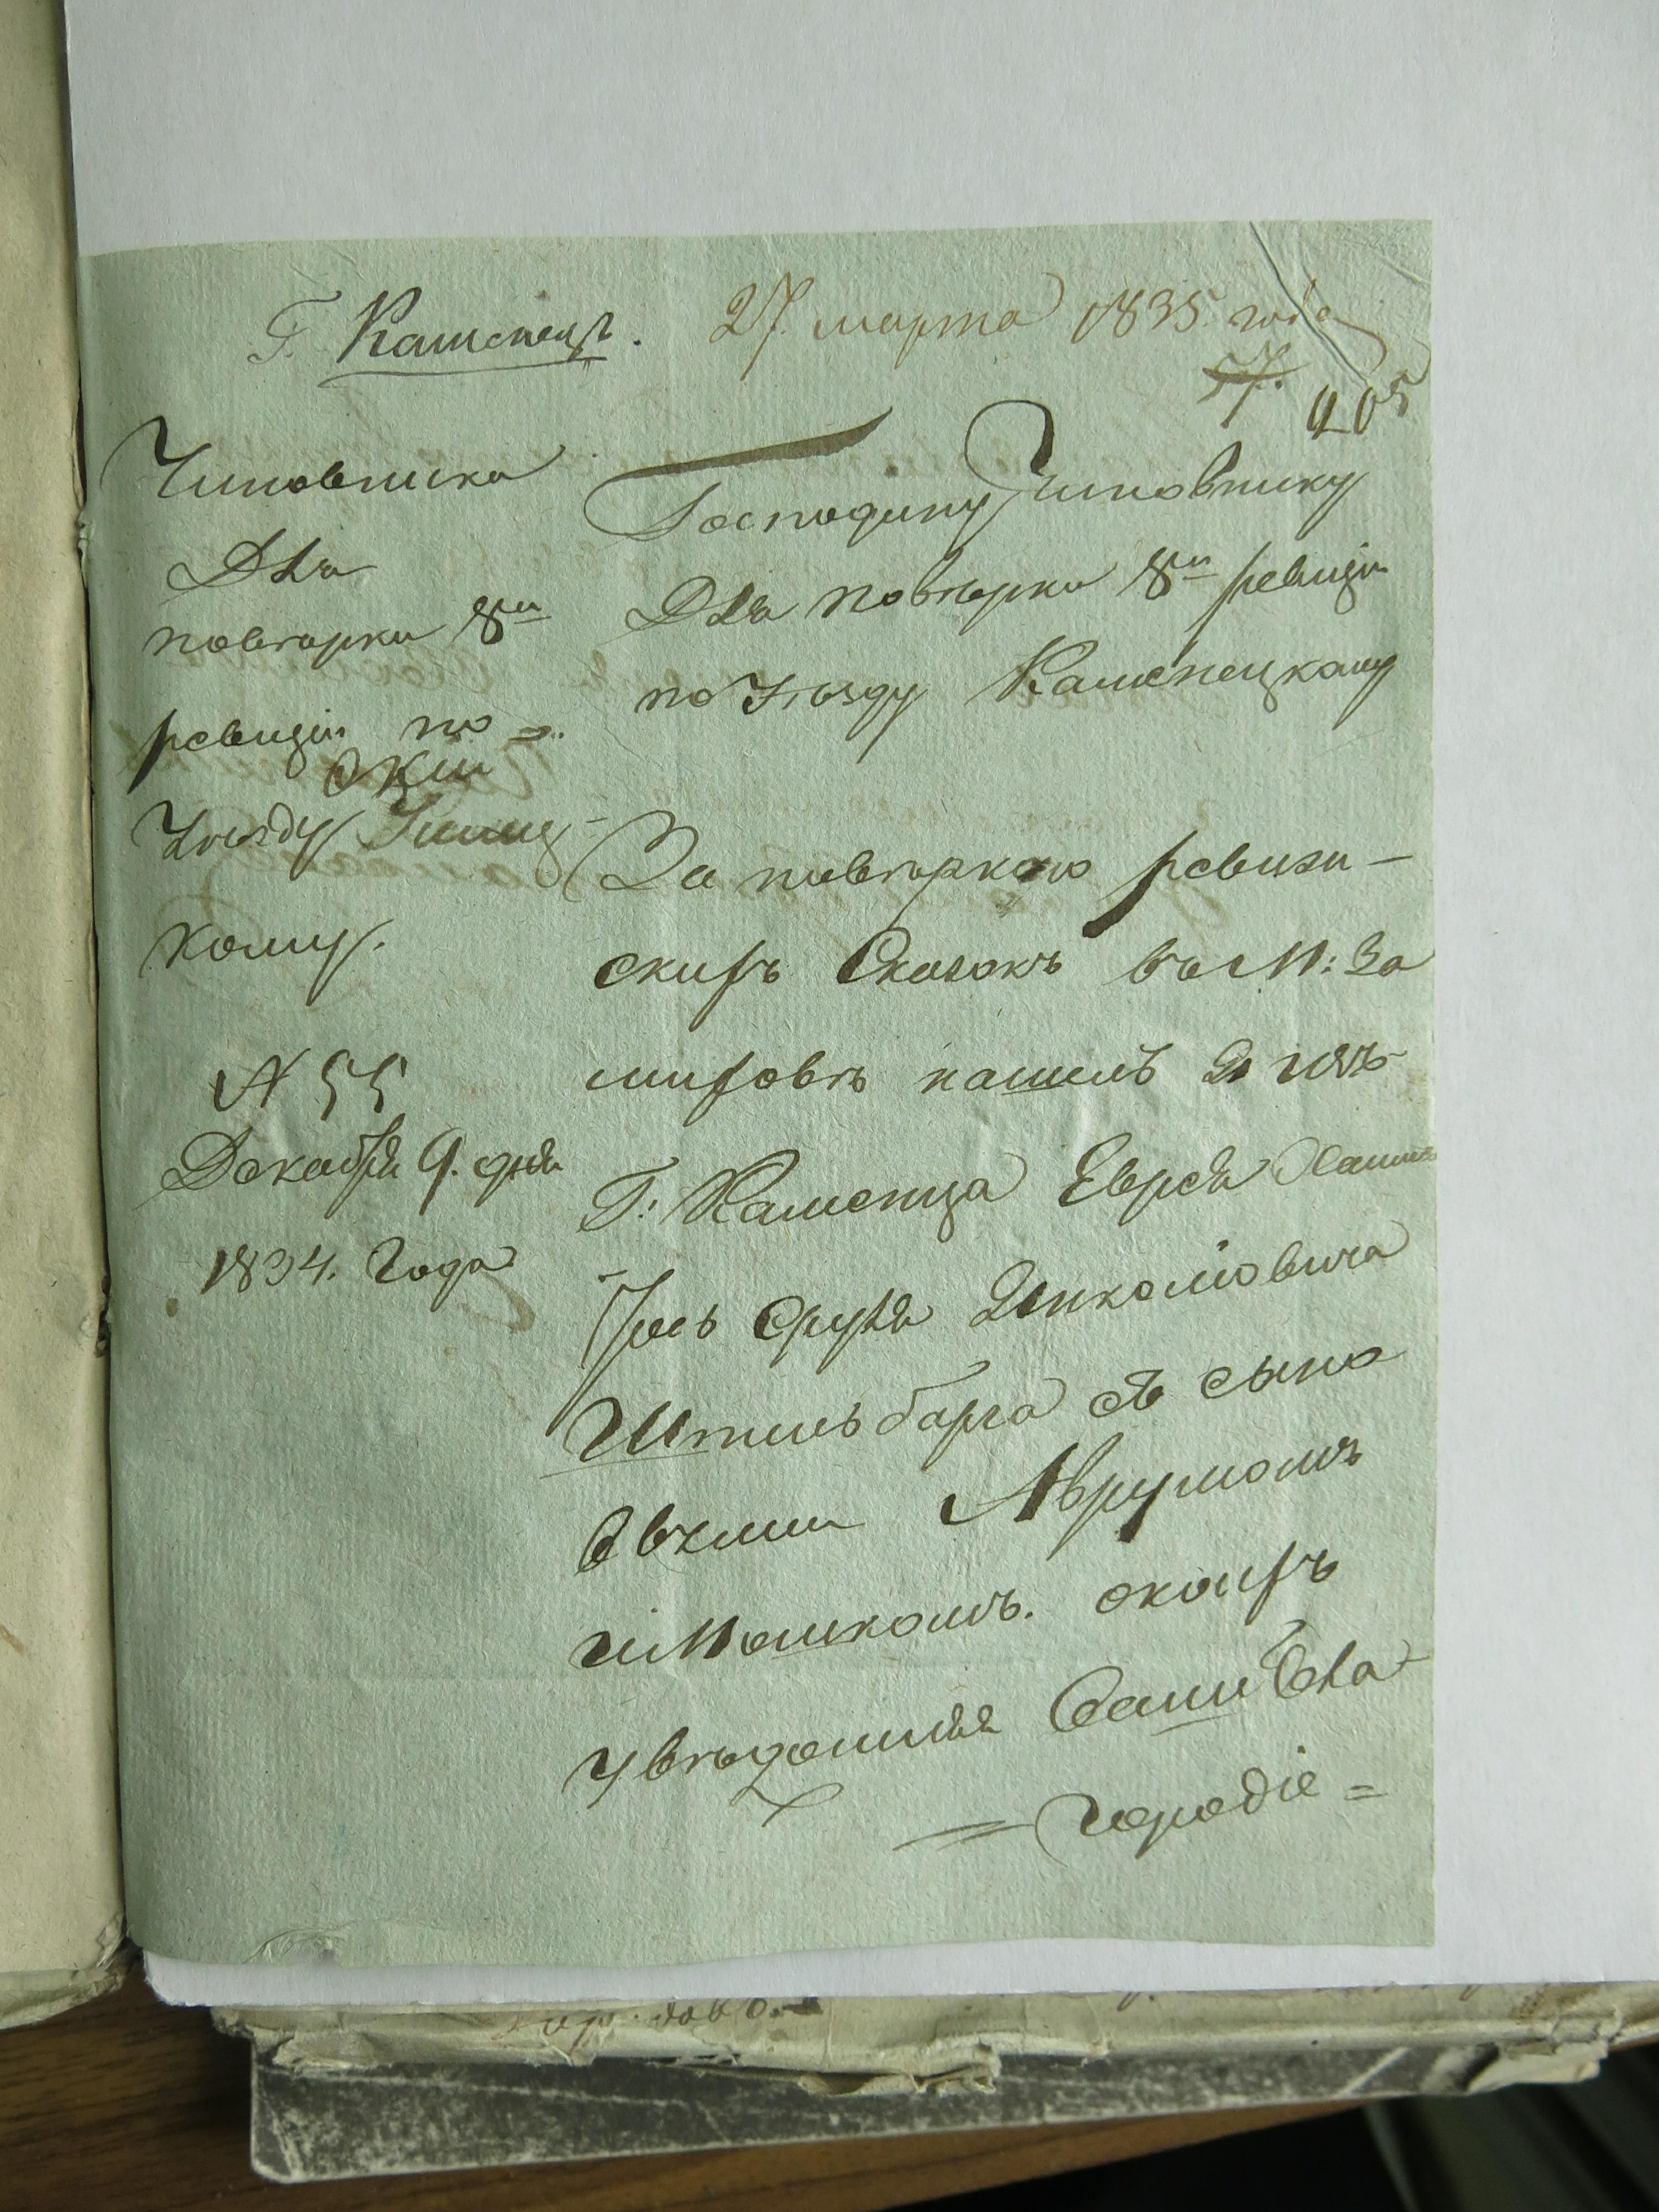 Г. Каменецъ.
27. марта 1835 года
57.
405
Чиновника
Для
повѣрки 8й
ревизіи по
Уѣзду
кому.
N 55
Декабря 9. дня
1834. Года
Господину Чиновнику
Для повѣрки 8й ревизіи
по Уѣзду Каменецкому
За повѣркою ревизи-
скихъ Сказокъ въ М: За
миховѣ нашелъ я изъ
Г: Каменца Еврея
Іось Сруля Янкелiовича
Штильбарга съ сыно
вьями Аврумомъ
и Мошкомъ. о коихъ
увѣдомляя Ваше Бла
= городіе =